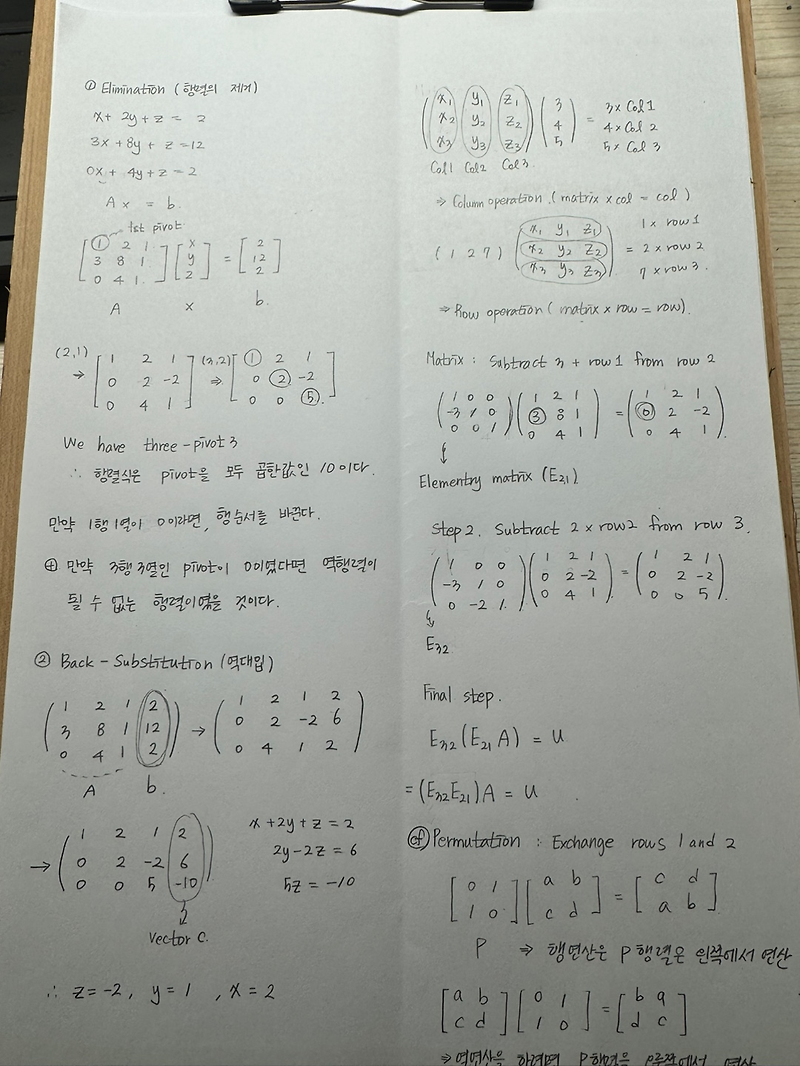 ① Elimination (행렬의 제거)
x + 2y + z = 2
3x + 8y + z = 12
0x + 4y + z = 2
Ax = b.
1st pivot
[1 2 1
3 8 1
0 4 1] [x
y
z] = [2
12
2]
A x b.
(2,1)
→ [1 2 1
0 2 -2
0 4 1] (3,2)
⇒ [1 2 1
0 2 -2
0 0 5]
We have three-pivot 3
∴ 행렬식은 pivot을 모두 곱한값인 10이다.
만약 1행 1열이 0이라면, 행순서를 바꾼다.
⊕ 만약 3행 3열인 pivot이 0이였다면 역행렬이
될 수 없는 행렬이였을 것이다.
② Back - Substitution (역대입)
(1 2 1 2
3 8 1 12
0 4 1 2) → (1 2 1 2
0 2 -2 6
0 4 1 2)
A b.
→ (1 2 1 2
0 2 -2 6
0 0 5 -10)
x + 2y + z = 2
2y - 2z = 6
5z = -10
vector c.
∴ z = -2, y = 1, x = 2
(x1 y1 z1
x2 y2 z2
x3 y3 z3) (3
4
5) = 3 x Col 1
4 x Col 2
5 x Col 3
Col1 Col2 Col3.
⇒ Column operation. (matrix x col = col)
(1 2 7) (x1 y1 z1
x2 y2 z2
x3 y3 z3) = 1 x row 1
2 x row 2
7 x row 3.
⇒ Row operation (matrix x row = row).
Matrix : Subtract 3 + row 1 from row 2
(1 0 0
-3 1 0
0 0 1) (1 2 1
3 8 1
0 4 1) = (1 2 1
0 2 -2
0 4 1).
Elementry matrix (E21)
Step 2. Subtract 2 x row2 from row 3.
(1 0 0
-3 1 0
0 -2 1) (1 2 1
0 2 -2
0 4 1) = (1 2 1
0 2 -2
0 0 5).
E32
Final step.
E32 (E21 A) = U
= (E32 E21) A = U
cf) Permutation : Exchange rows 1 and 2
[0 1
1 0] [a b
c d] = [c d
a b]
P ⇒ 행연산은 P 행렬은 왼쪽에서 연산
[a b
c d] [0 1
1 0] = [b a
d c]
⇒ 하려면 P행렬을 오른쪽에서 연산